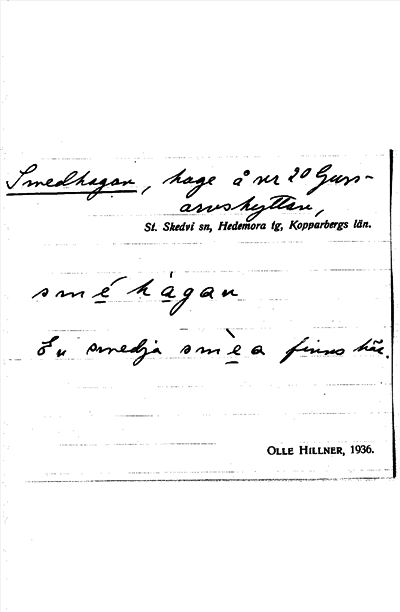 Smedhagan, hage å nr 20 Gus-
arvshyttan,
St. Skedvi sn, Hedemora tg, Kopparbergs län.
smé hàgan
En smedja smèa finns här.
OLLE HILLNER, 1936.